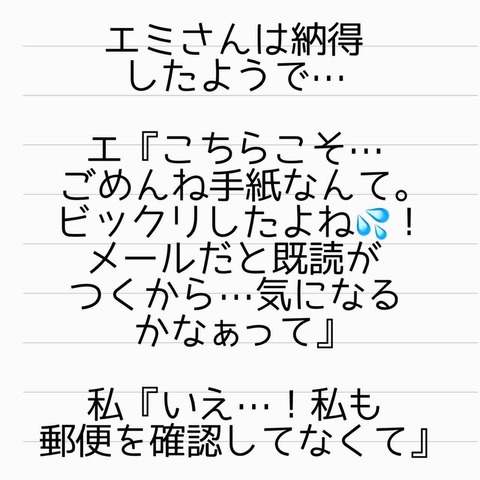 エミさんは納得
したようで…
エ『こちらこそ…
ごめんね手紙なんて。
ビックリしたよね💦！
メールだと既読が
つくから…気になる
かなぁって』
私『いえ…！私も
郵便を確認してなくて』